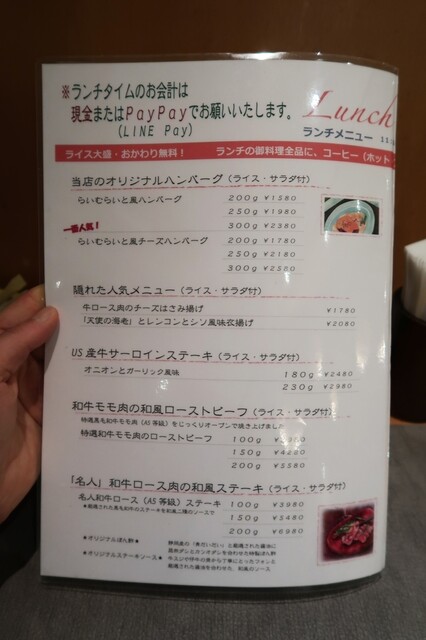 ※ランチタイムのお会計は
現金またはPayPayでお願いいたします。
(LINE Pay)
Lunch
ランチメニュー
ライス大盛・おかわり無料! ランチの御料理全品に、コーヒー(ホット
当店のオリジナルハンバーグ(ライス・サラダ付)
らいむらいと風ハンバーグ 200g ¥1580
250g ¥1980
300g ¥2380
一番人気!
らいむらいと風チーズハンバーグ 200g ¥1780
250g ¥2180
300g ¥2580
隠れた人気メニュー(ライス・サラダ付)
牛ロース肉のチーズはさみ揚げ ¥1780
「天使の海老」とレンコンとシソ風味衣揚げ ¥2080
US産牛サーロインステーキ(ライス・サラダ付)
オニオンとガーリック風味 180g ¥2480
230g ¥2980
和牛モモ肉の和風ローストビーフ(ライス・サラダ付)
特選黒毛和牛モモ肉(A5等級)をじっくりオーブンで焼き上げました
特選和牛モモ肉のローストビーフ 100g
150g
200g ¥5580
「名人」和牛ロース肉の和風ステーキ(ライス・サラダ付)
名人和牛ロース(A5等級)ステーキ 100g ¥3980
★厳選された黒毛和牛のステーキを和風二種のソースで
150g ¥5480
200g ¥6980
★オリジナルぽん酢★
★オリジナルステーキソース★